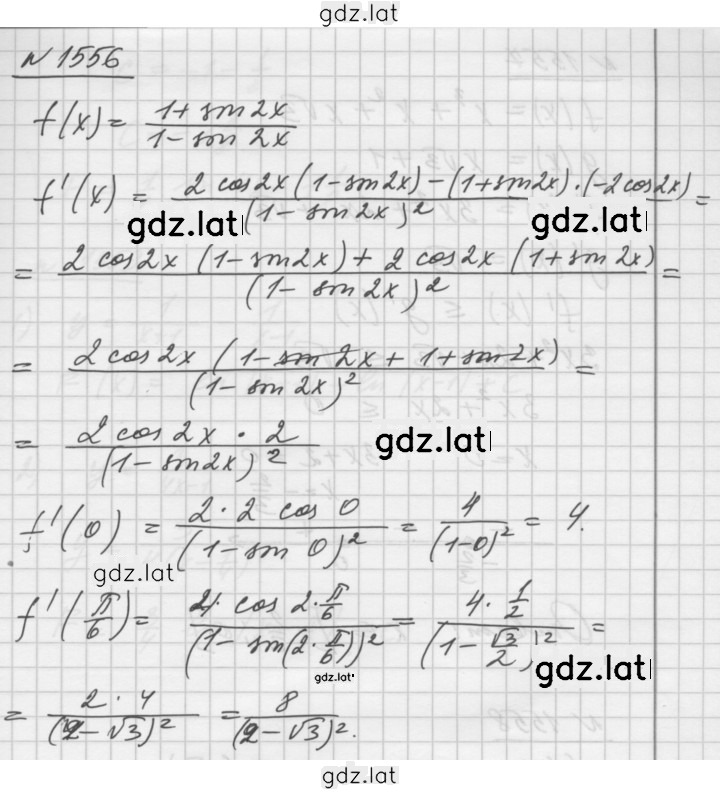 gdz.lat
N 1556
f(x) = (1 + sin 2x)/(1 - sin 2x)
f'(x) = (2 cos 2x (1 - sin 2x) - (1 + sin 2x) · (-2 cos 2x))/(1 - sin 2x)² =
gdz.lat gdz.lat
= (2 cos 2x (1 - sin 2x) + 2 cos 2x (1 + sin 2x))/(1 - sin 2x)² =
= (2 cos 2x (1 - sin 2x + 1 + sin 2x))/(1 - sin 2x)² =
= (2 cos 2x · 2)/(1 - sin 2x)² gdz.lat
f'(0) = (2 · 2 cos 0)/(1 - sin 0)² = 4/(1-0)² = 4.
gdz.lat
f'(π/6) = (4 cos 2·π/6)/(1 - sin(2·π/6))² = (4 · 1/2)/(1 - √3/2)² =
gdz.lat gdz.lat
= (2 · 4)/(2 - √3)² = 8/(2 - √3)².
gdz.lat